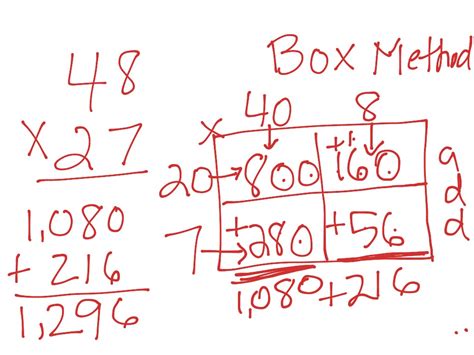 Box Method
48
x 27
1,080
+ 216
1,296
x 40 8
20 800 +160
7 +280 +56
add
1,080+216
..